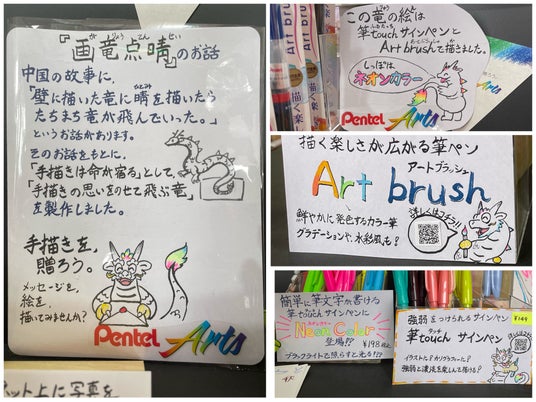 『画竜点晴』のお話
がりょうてんせい
中国の故事に、
「壁に描いた竜に晴を描いたら
ひとみ
たちまち竜が飛んでいった。」
というお話があります。
そのお話をもとに、
「手描きは命が宿る」として、
「手描きの思いをのせて飛ぶ竜」
を製作しました。
手描きを、
贈ろう。
メッセージを、
絵を、
描いてみませんか?
Pentel Arts
ネット上に写真を
この竜の絵は
筆touchサインペンと
Art brushで描きました。
しっぽは
ネオンカラー
Pentel Arts
描く楽しさが広がる筆ペン
アートブラッシュ
Art brush
詳しくはコチラ!!
鮮やかに発色するカラー筆
グラデーションや、水彩風も!
簡単に筆文字が書ける
筆touchサインペンに
Neon Color
登場!?
¥198
ブラックライトで照らすと光る!?
強弱をつけられるサインペン
筆touchサインペン
タッチ
イラストに?カリグラフィーに?
強弱と濃淡を楽しんで描ける?